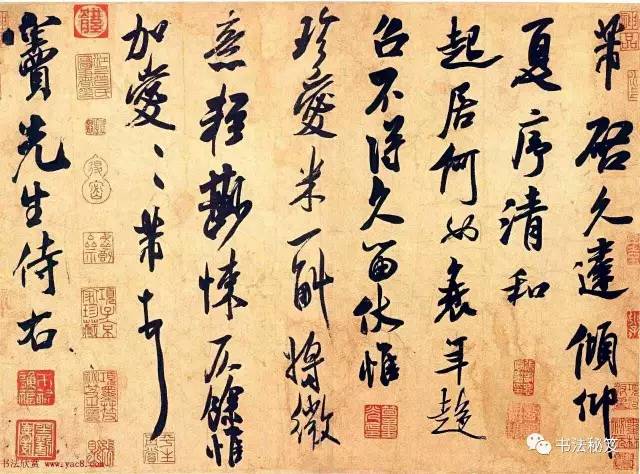 芾启久违倾仰
夏序清和
起居何如衰年趋
召不得久留伏惟
珍爱米一斛将微
意轻鲜悚仄余惟
加爱、、芾顿首
窦先生侍右
书法欣赏 www.yac8.com
书法秘笈